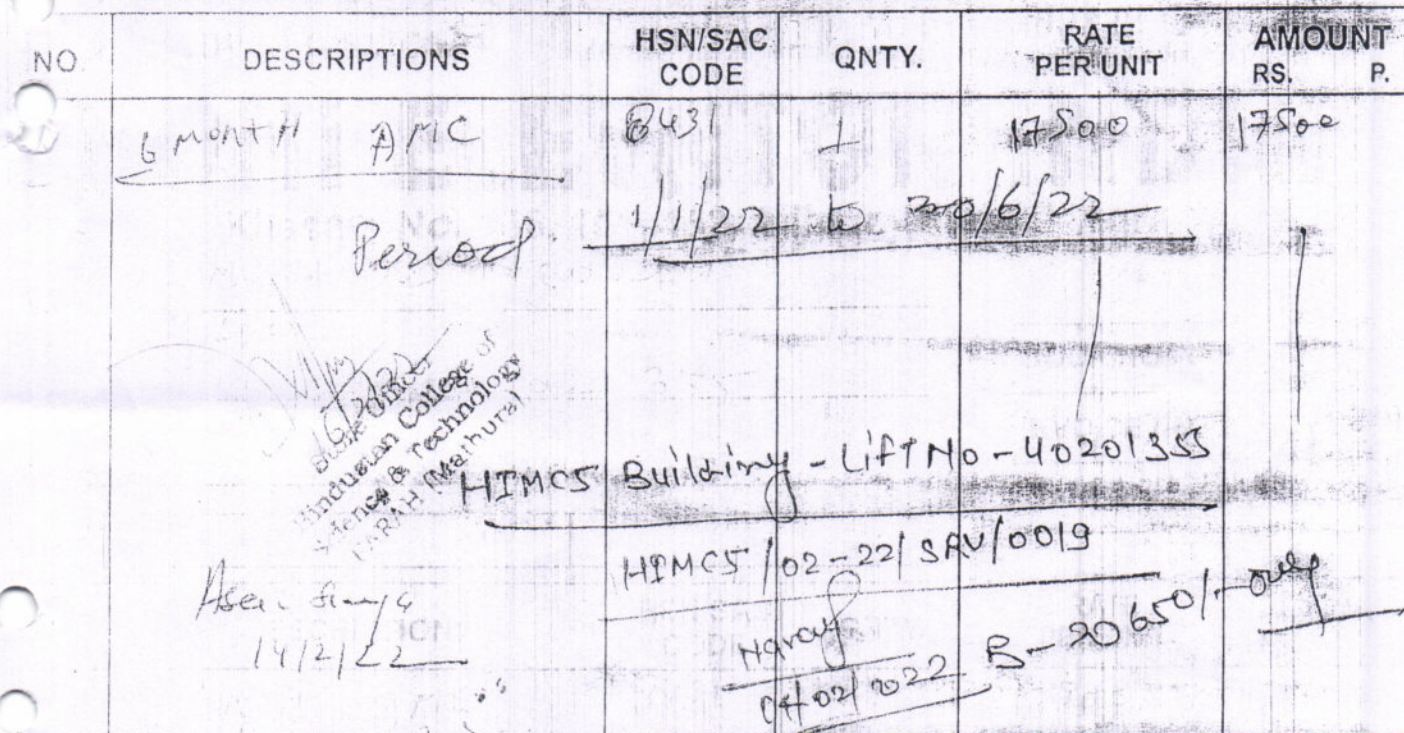 NO. DESCRIPTIONS HSN/SAC CODE QNTY. RATE PER UNIT AMOUNT RS. P.
6 MONTH AMC 8431 1 17500 17500
Period 1/1/22 to 30/6/22
Hindustan College of
Science & Technology
FARAH (Mathura)
HIMCS Building - Lift No - 40201355
HIMCS/02-22/SRV/0019
14/2/22
02/2022
20650/- only